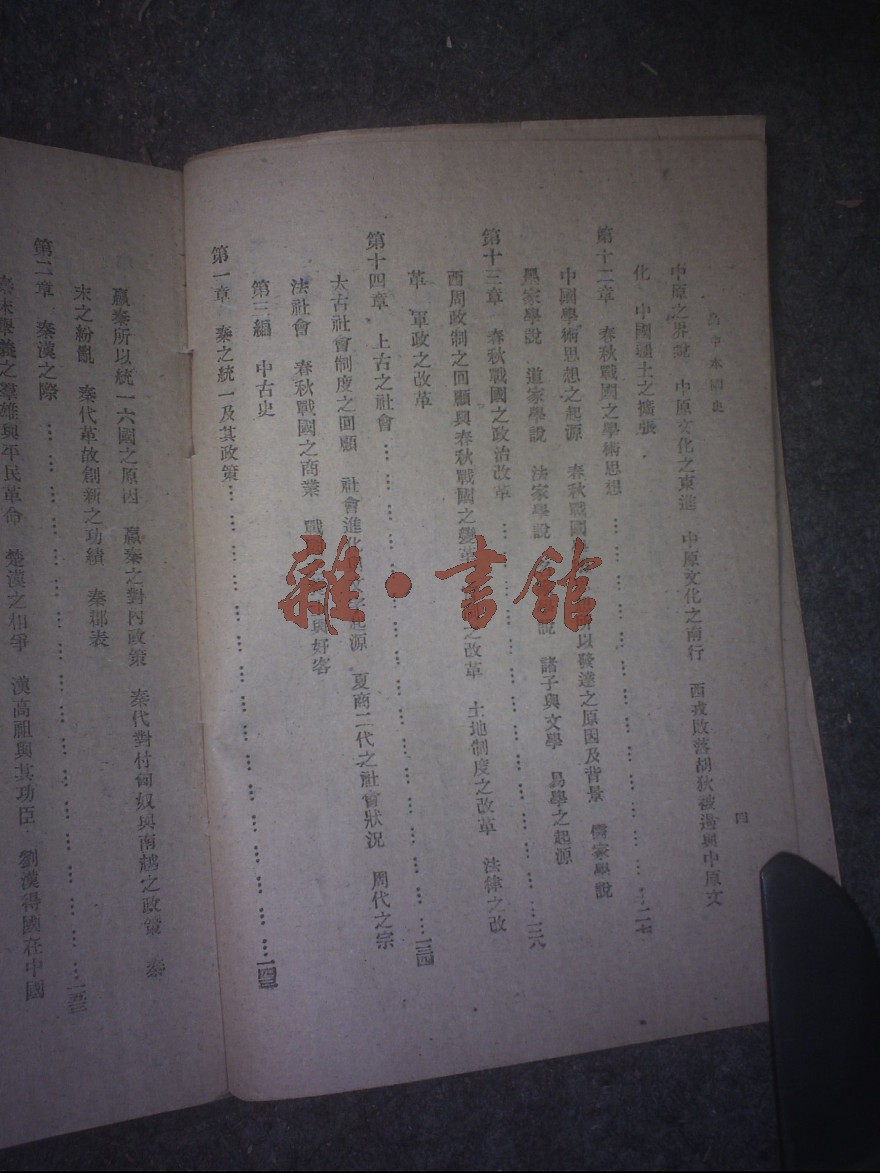 高中本國史
四
中原之界說 中原文化之東進 中原文化之南行 西戎敗落胡狄被逼與中原文
化 中國疆土之擴張
第十二章 春秋戰國之學術思想……………………一一七
中國學術思想之起源 春秋戰國 以發達之原因及背景 儒家學說
墨家學說 道家學說 法家學說 說 諸子與文學 易學之起源
第十三章 春秋戰國之政治改革……………………一二八
西周政制之回顧與春秋戰國之變革 之改革 土地制度之改革 法律之改
革 軍政之改革
第十四章 上古之社會……………………一三四
太古社會制度之回顧 社會進化 起源 夏商二代之社會狀況 周代之宗
法社會 春秋戰國之商業 戰 與好客
第三編 中古史
第一章 秦之統一及其政策……………………一四三
嬴秦所以統一六國之原因 嬴秦之對內政策 秦代對付匈奴與南越之政策 秦
末之紛亂 秦代革故創新之功績 秦郡表
第二章 秦漢之際……………………一五三
秦末舉義之羣雄與平民革命 楚漢之相爭 漢高祖與其功臣 劉漢得國在中國
雜·書館